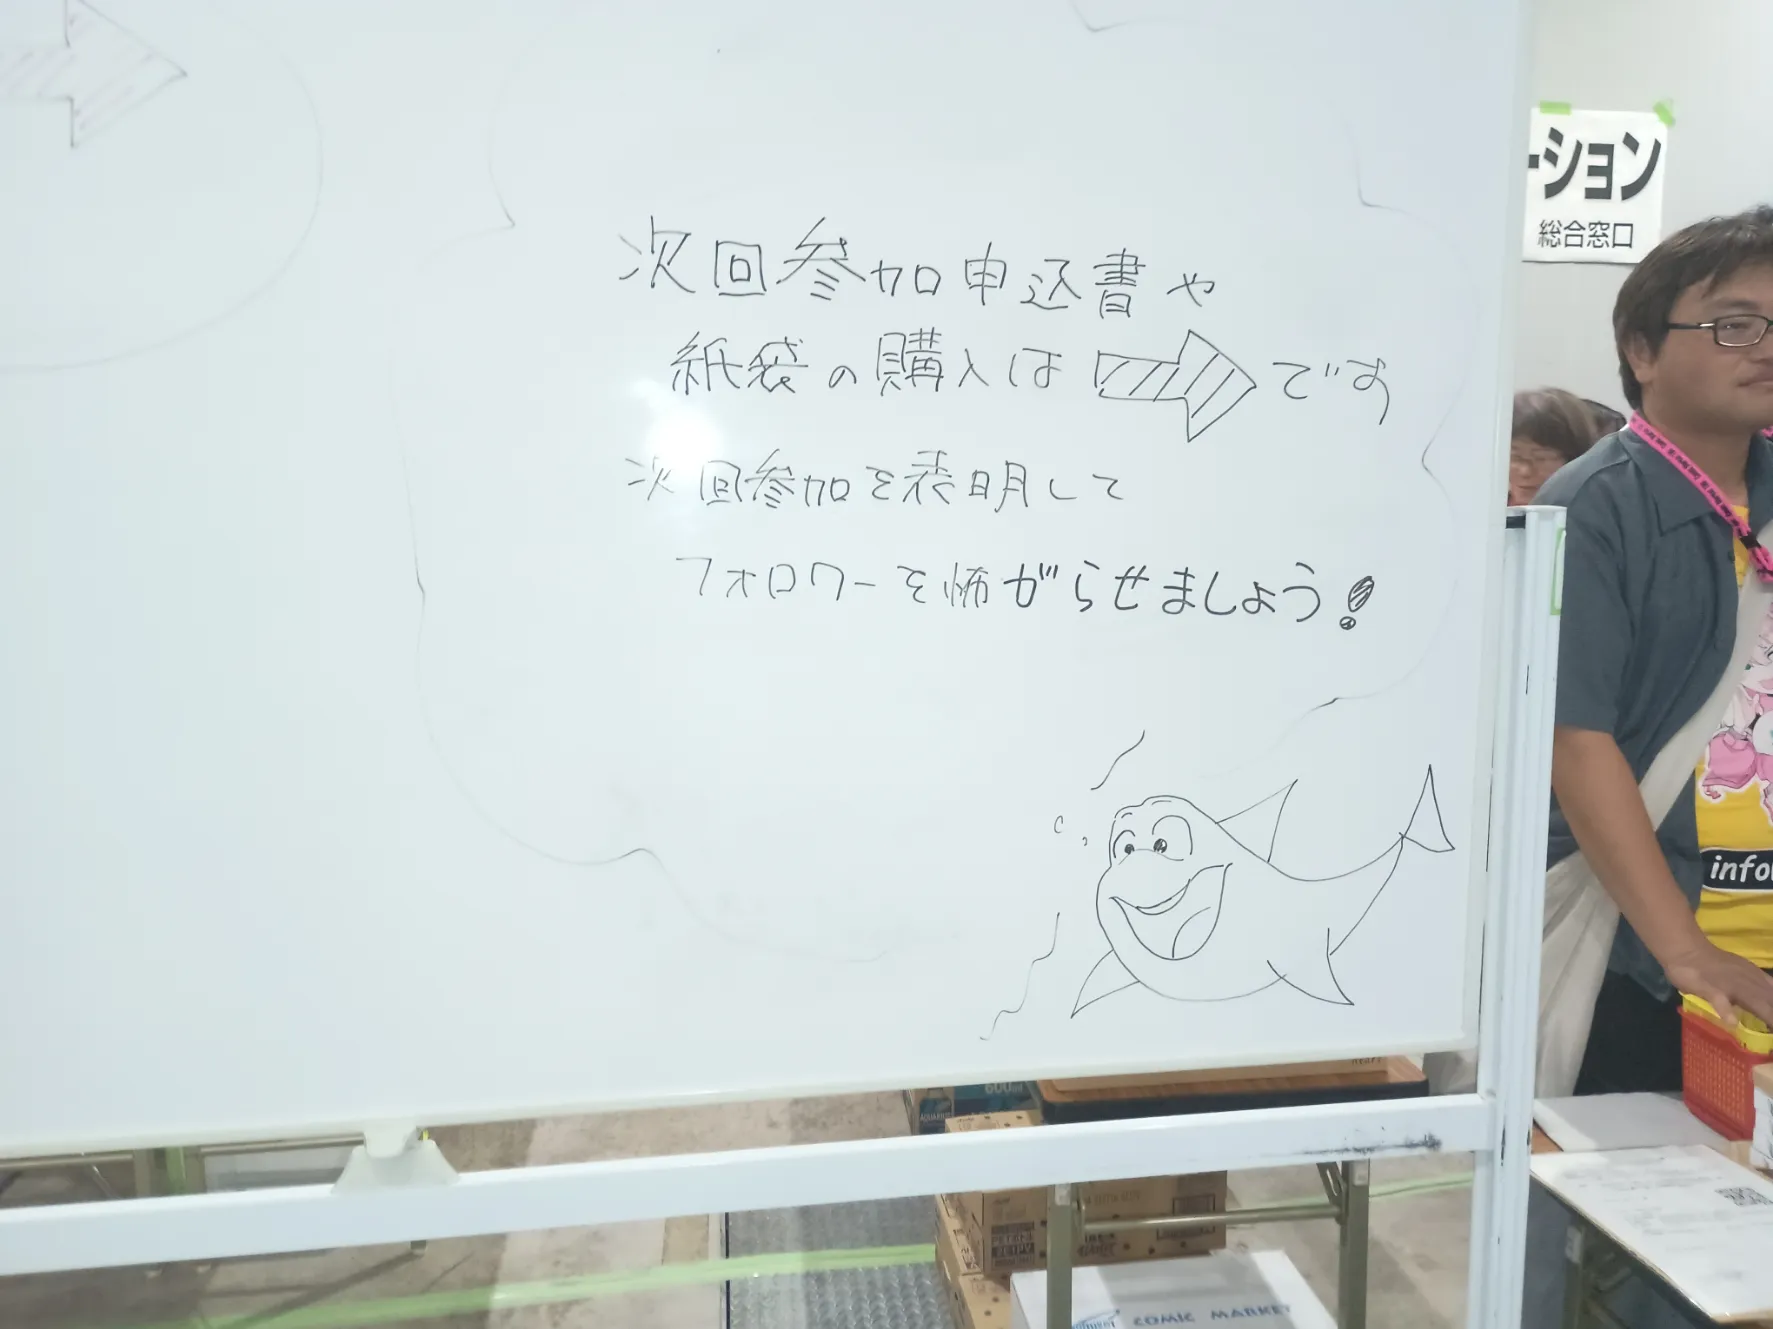 次回参加申込書や
紙袋の購入は➡です
次回参加を表明して
フォロワーを怖がらせましょう!
ーション
総合窓口
info
COMIC MARKET